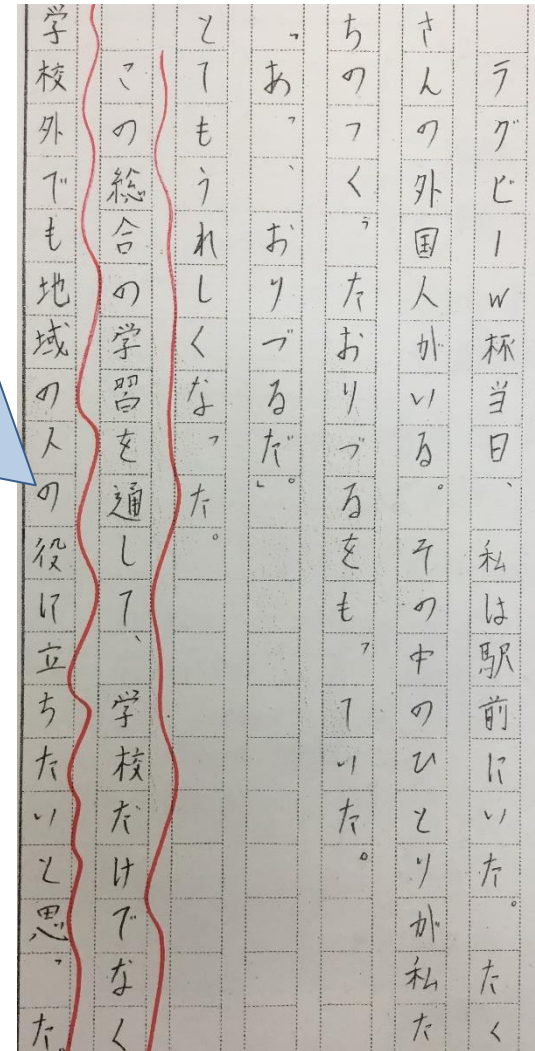 ラグビーW杯当日、私は駅前にいた。たく
さんの外国人がいる。その中のひとりが私た
ちのつくったおりづるをもっていた。
「あっ、おりづるだ」。
とてもうれしくなった。
この総合の学習を通して、学校だけでなく
学校外でも地域の人の役に立ちたいと思った。